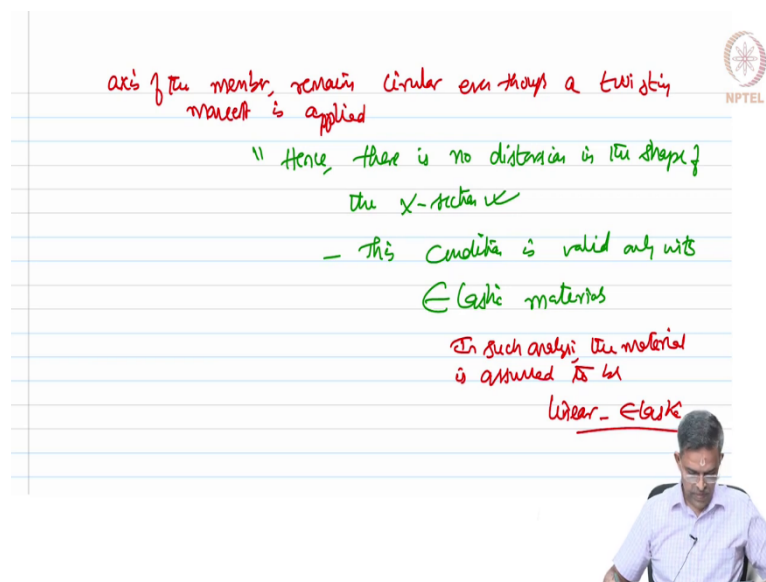 axis of the member, remain circular even though a twisting
moment is applied
" Hence, there is no distorsion in the shape of
the X-section
- This Condition is valid only with
Elastic materials
In such analysis, the material
is assumed to be
linear - Elastic
NPTEL